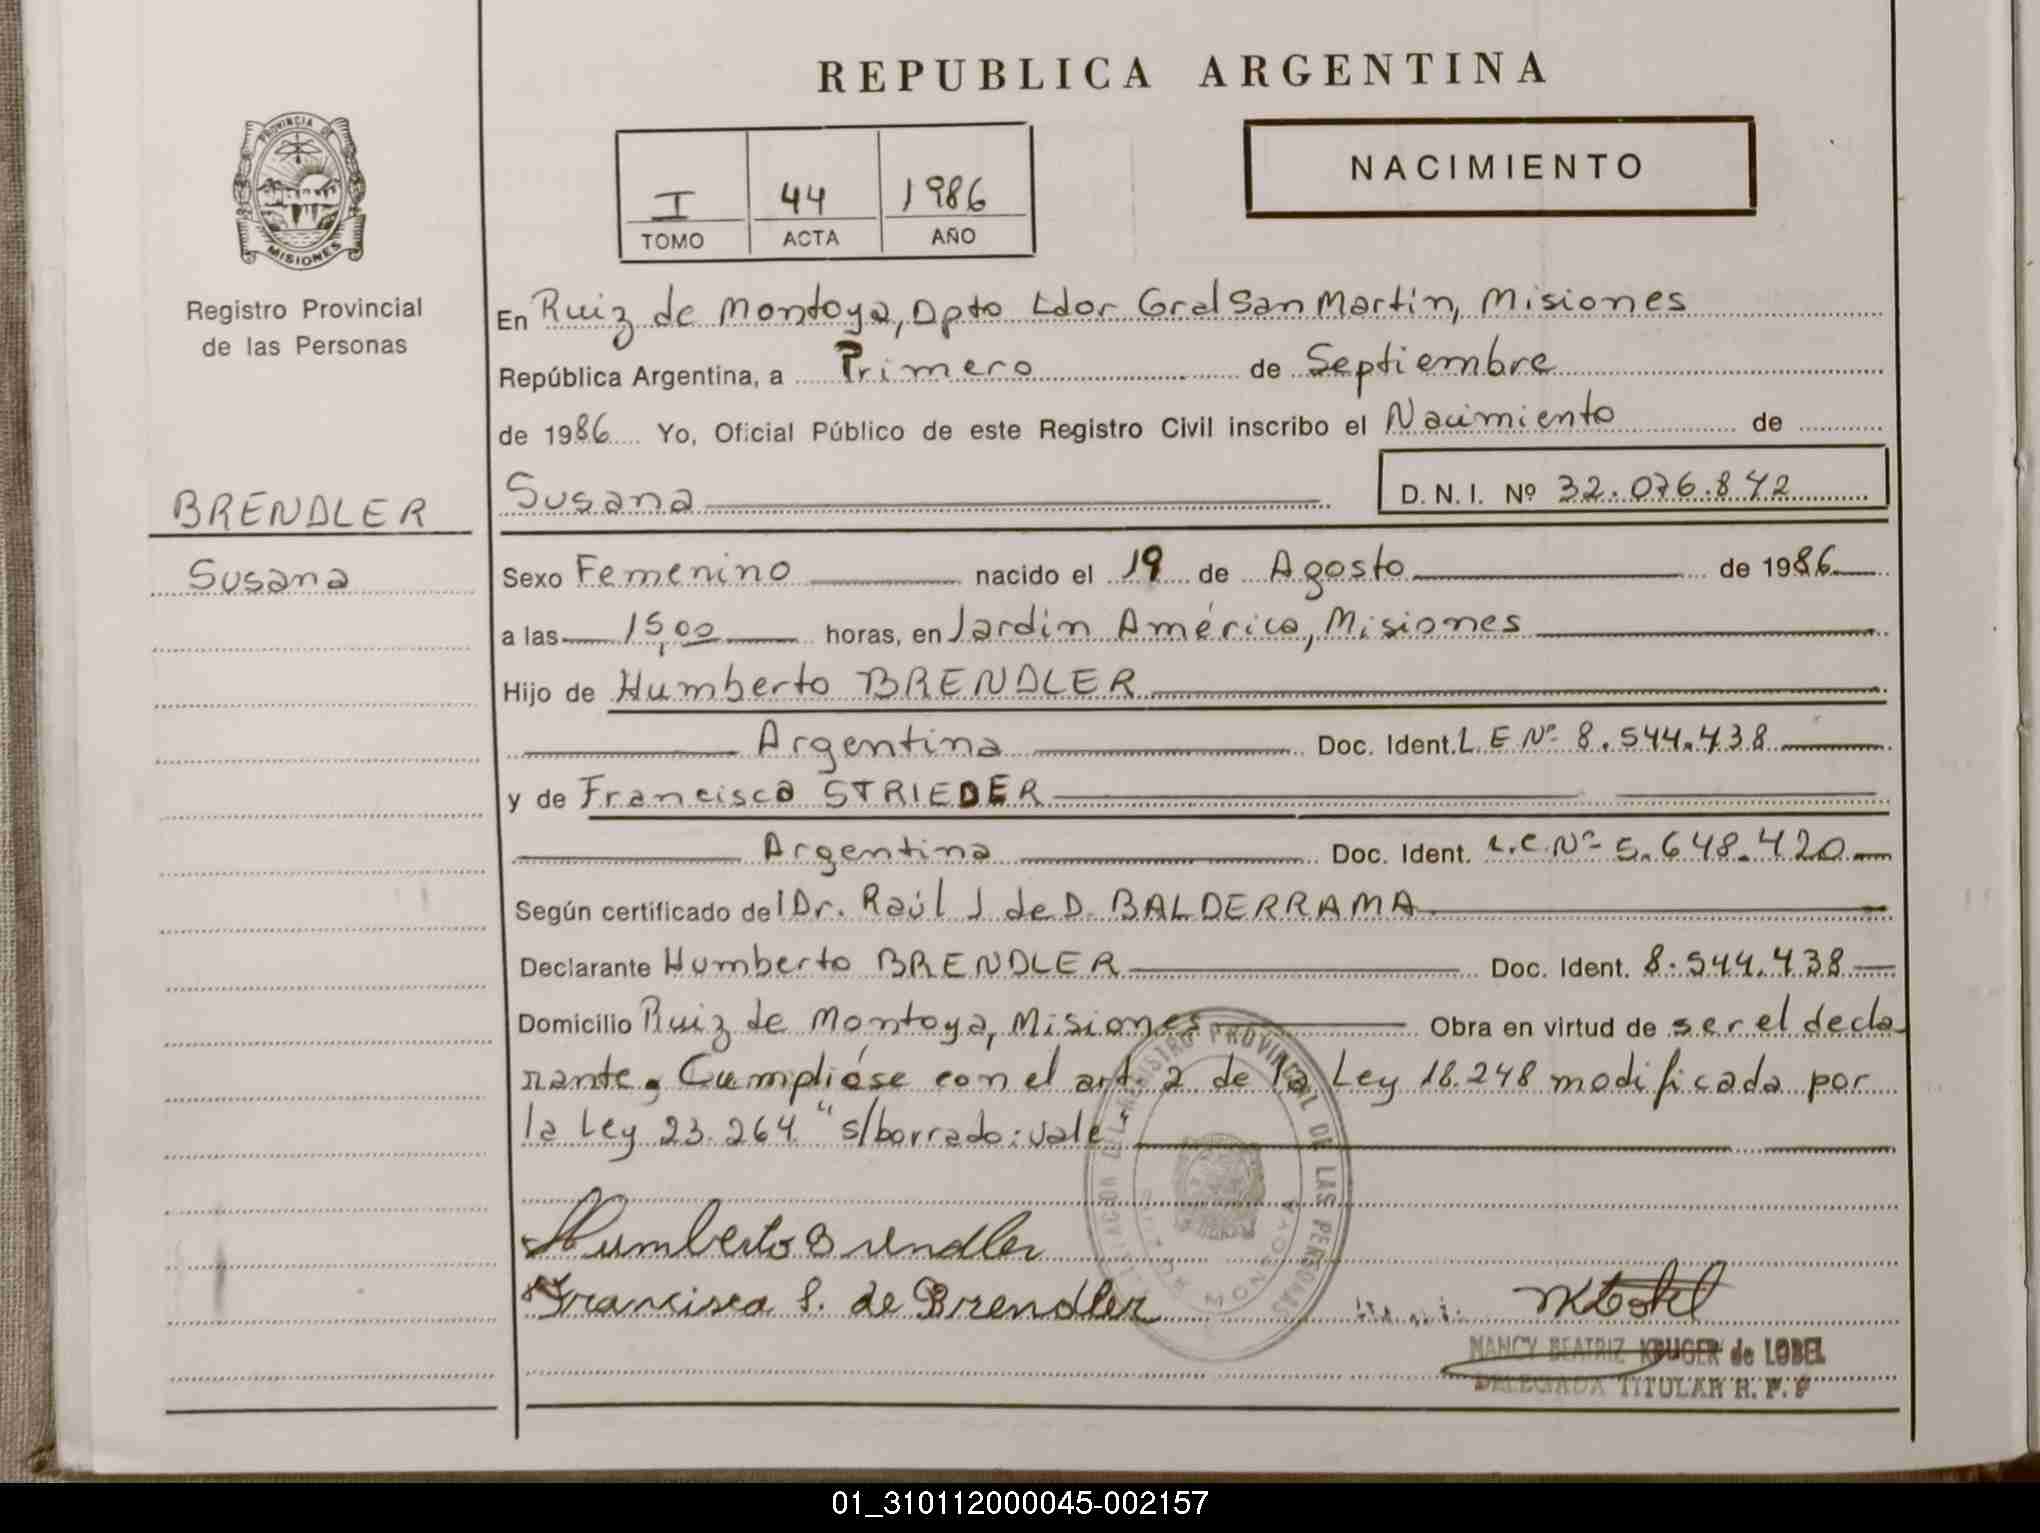 REPUBLICA ARGENTINA
PROVINCIA DE
MISIONES
I 44 1986
TOMO ACTA AÑO
NACIMIENTO
Registro Provincial
de las Personas
BRENDLER
Susana
En Ruiz de Montoya, Dpto Ldor Gral San Martín, Misiones
República Argentina, a Primero de Septiembre
de 1986 Yo, Oficial Público de este Registro Civil inscribo el Nacimiento de
Susana D. N. I. Nº 32.076.842
Sexo Femenino nacido el 19 de Agosto de 1986
a las 15,00 horas, en Jardín América, Misiones
Hijo de Humberto BRENDLER
Argentina Doc. Ident. L E Nº 8.544.438
y de Francisca STRIEDER
Argentina Doc. Ident. L.C. Nº 5.648.420
Según certificado del Dr. Raúl J de D. BALDERRAMA
Declarante Humberto BRENDLER Doc. Ident. 8.544.438
Domicilio Ruiz de Montoya, Misiones Obra en virtud de ser el decla
rante. Cumplióse con el art. 2 de la Ley 18.248 modificada por
la Ley 23.264 "s/borrado: vale"
REGISTRO PROVINCIAL DE LAS PERSONAS
MONTOYA
Humberto Brendler
Francisca S. de Brendler
NANCY BEATRIZ KRUGER de LOBEL
DELEGADA TITULAR R. P. P
01_310112000045-002157